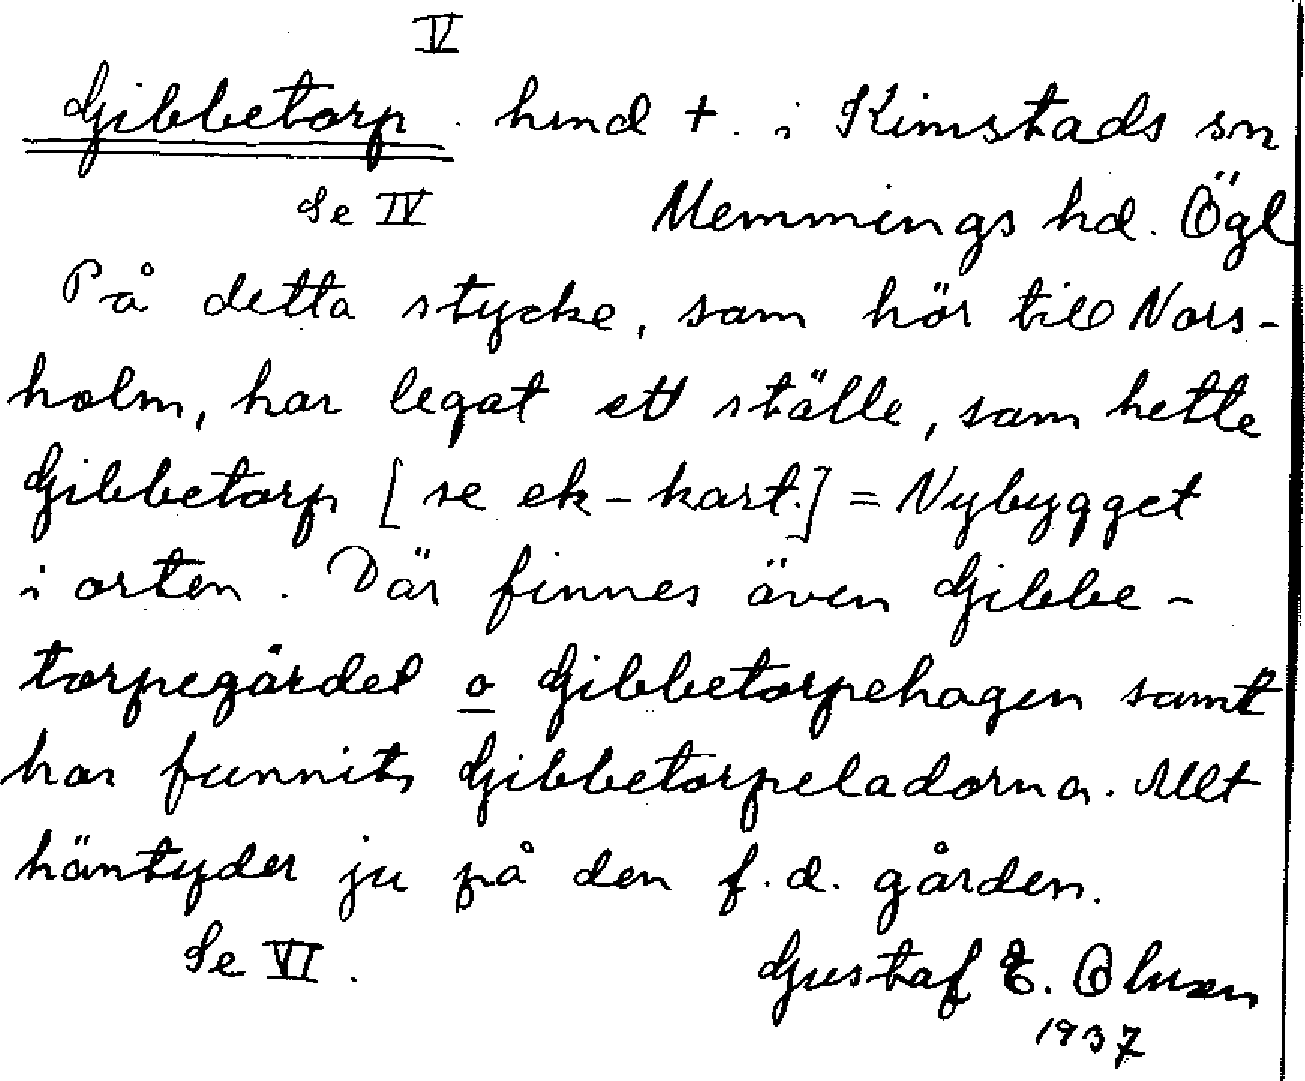 V
Gibbetorp. hmd +. i Kimstads sn
Se IV Memmings hd. Ögl
På detta stycke, som hör till Nors-
holm, har legat ett ställe, som hette
Gibbetorp [se ek-kart.] = Nybygget
i orten. Där finnes även Gibbe-
torpegärdet o Gibbetorpehagen samt
har funnits Gibbetorpeladorna. Allt
häntyder ju på den f.d. gården.
Se VI. Gustaf E. Olsson
1937